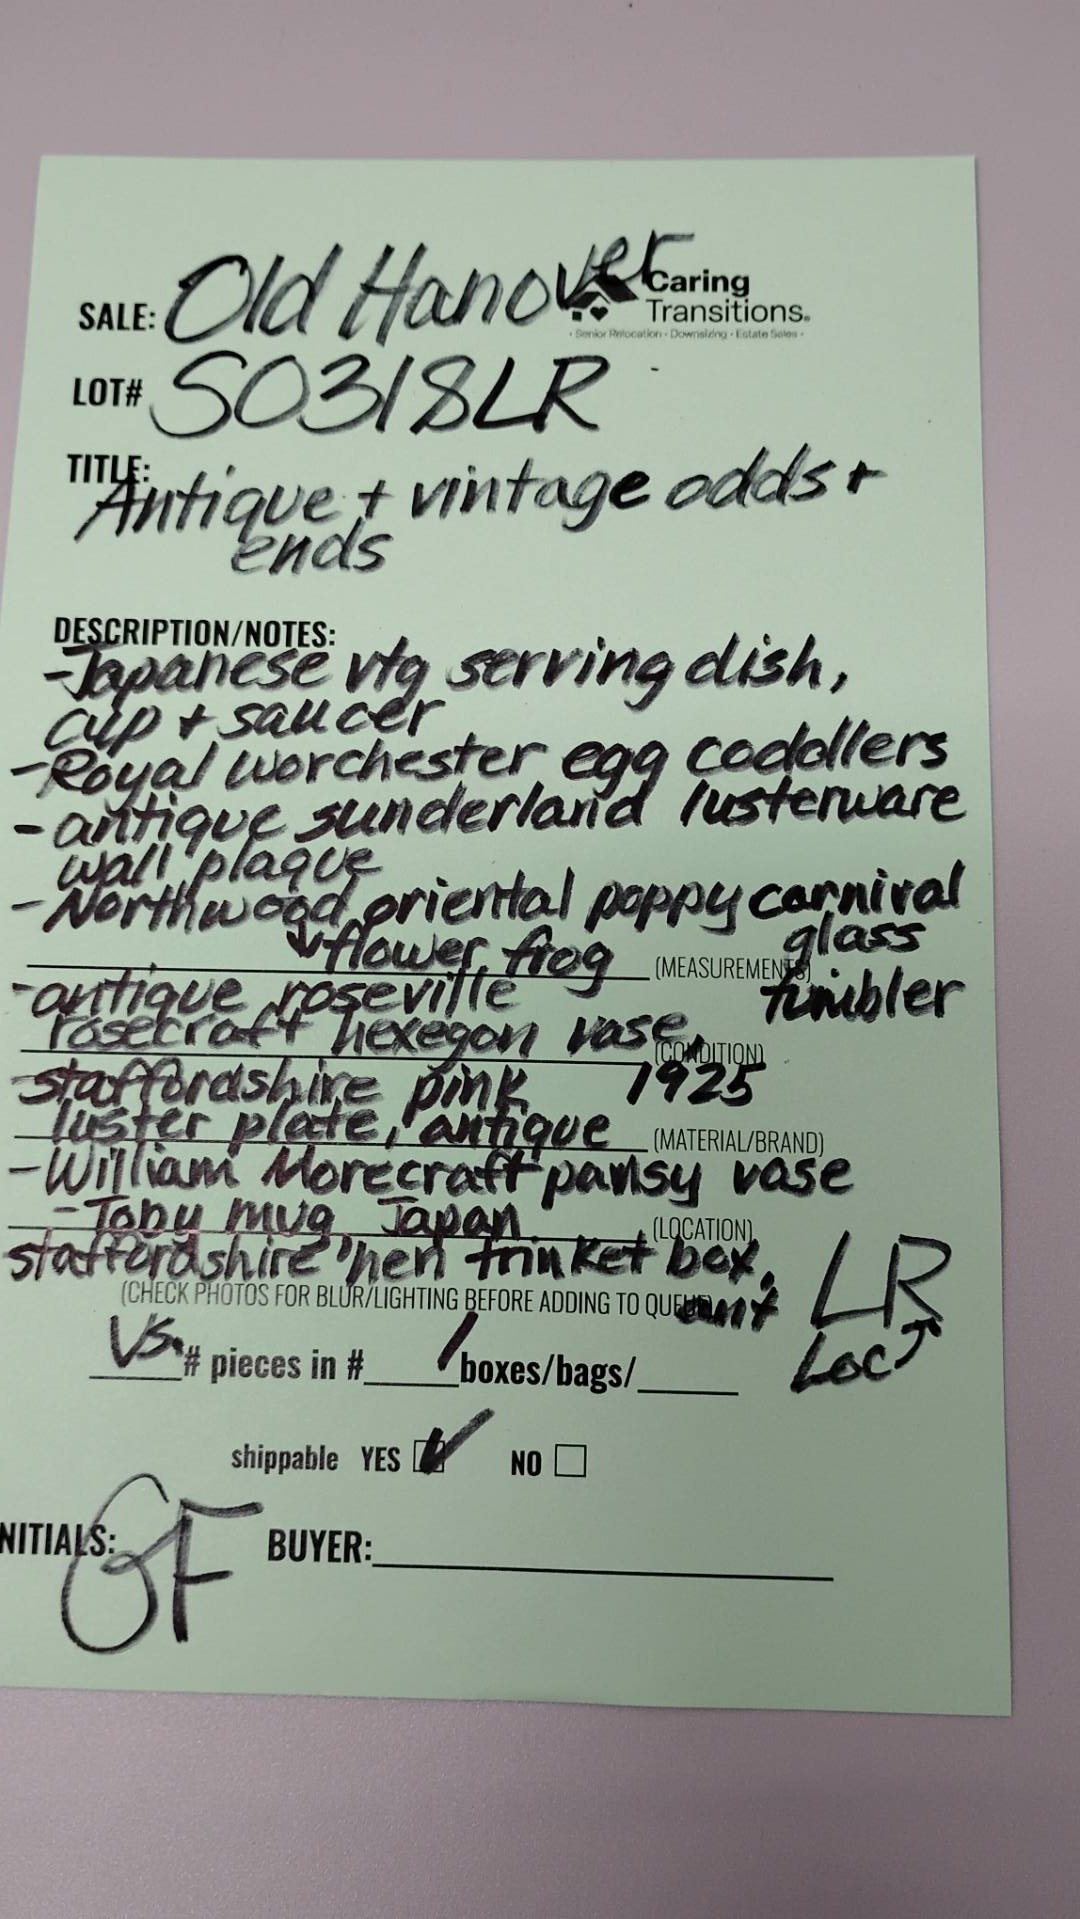 SALE: Old Hanover
Caring
Transitions.
· Senior Relocation · Downsizing · Estate Sales ·
LOT# SO318LR
TITLE:
Antique + vintage odds +
ends
DESCRIPTION/NOTES:
-Japanese vtg serving dish,
cup + saucer
-Royal worchester egg coddlers
-antique sunderland lusterware
wall plaque
-Northwood oriental poppy carnival
glass
tumbler
flower frog
(MEASUREMENTS)
-antique roseville
rosecraft hexegon vase,
1925
(CONDITION)
-staffordshire pink
luster plate, antique
(MATERIAL/BRAND)
-William Morecraft pansy vase
-Toby mug, Japan
(LOCATION)
staffordshire hen trinket box,
LR
Loc
(CHECK PHOTOS FOR BLUR/LIGHTING BEFORE ADDING TO QUEUE)
VS. # pieces in # 1 boxes/bags/
shippable YES NO
NITIALS: GF BUYER: